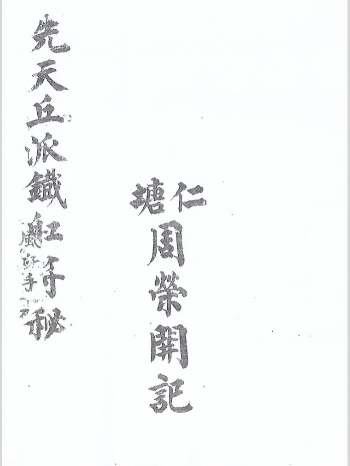 仁塘
周榮開記
先天丘派鐵秘